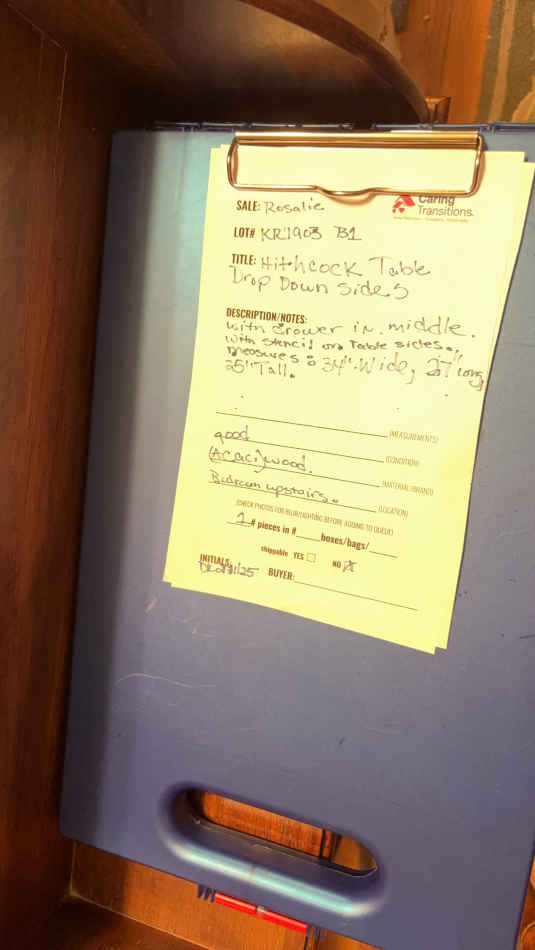 SALE: Rosalie
Caring
Transitions.
LOT# KR1903 B1
TITLE: Hithcock Table
Drop Down Sides
DESCRIPTION/NOTES:
with Drower in middle.
with stencil on Table sides.,
measures : 34" Wide, 27" long,
25" Tall.
(MEASUREMENTS)
good
(CONDITION)
(Acaci) wood.
(MATERIAL/BRAND)
Bedroom upstairs.
(LOCATION)
(CHECK PHOTOS FOR BLUR/LIGHTING BEFORE ADDING TO QUEUE)
1 # pieces in # boxes/bags/
shippable YES NO
INITIALS:
BUYER: